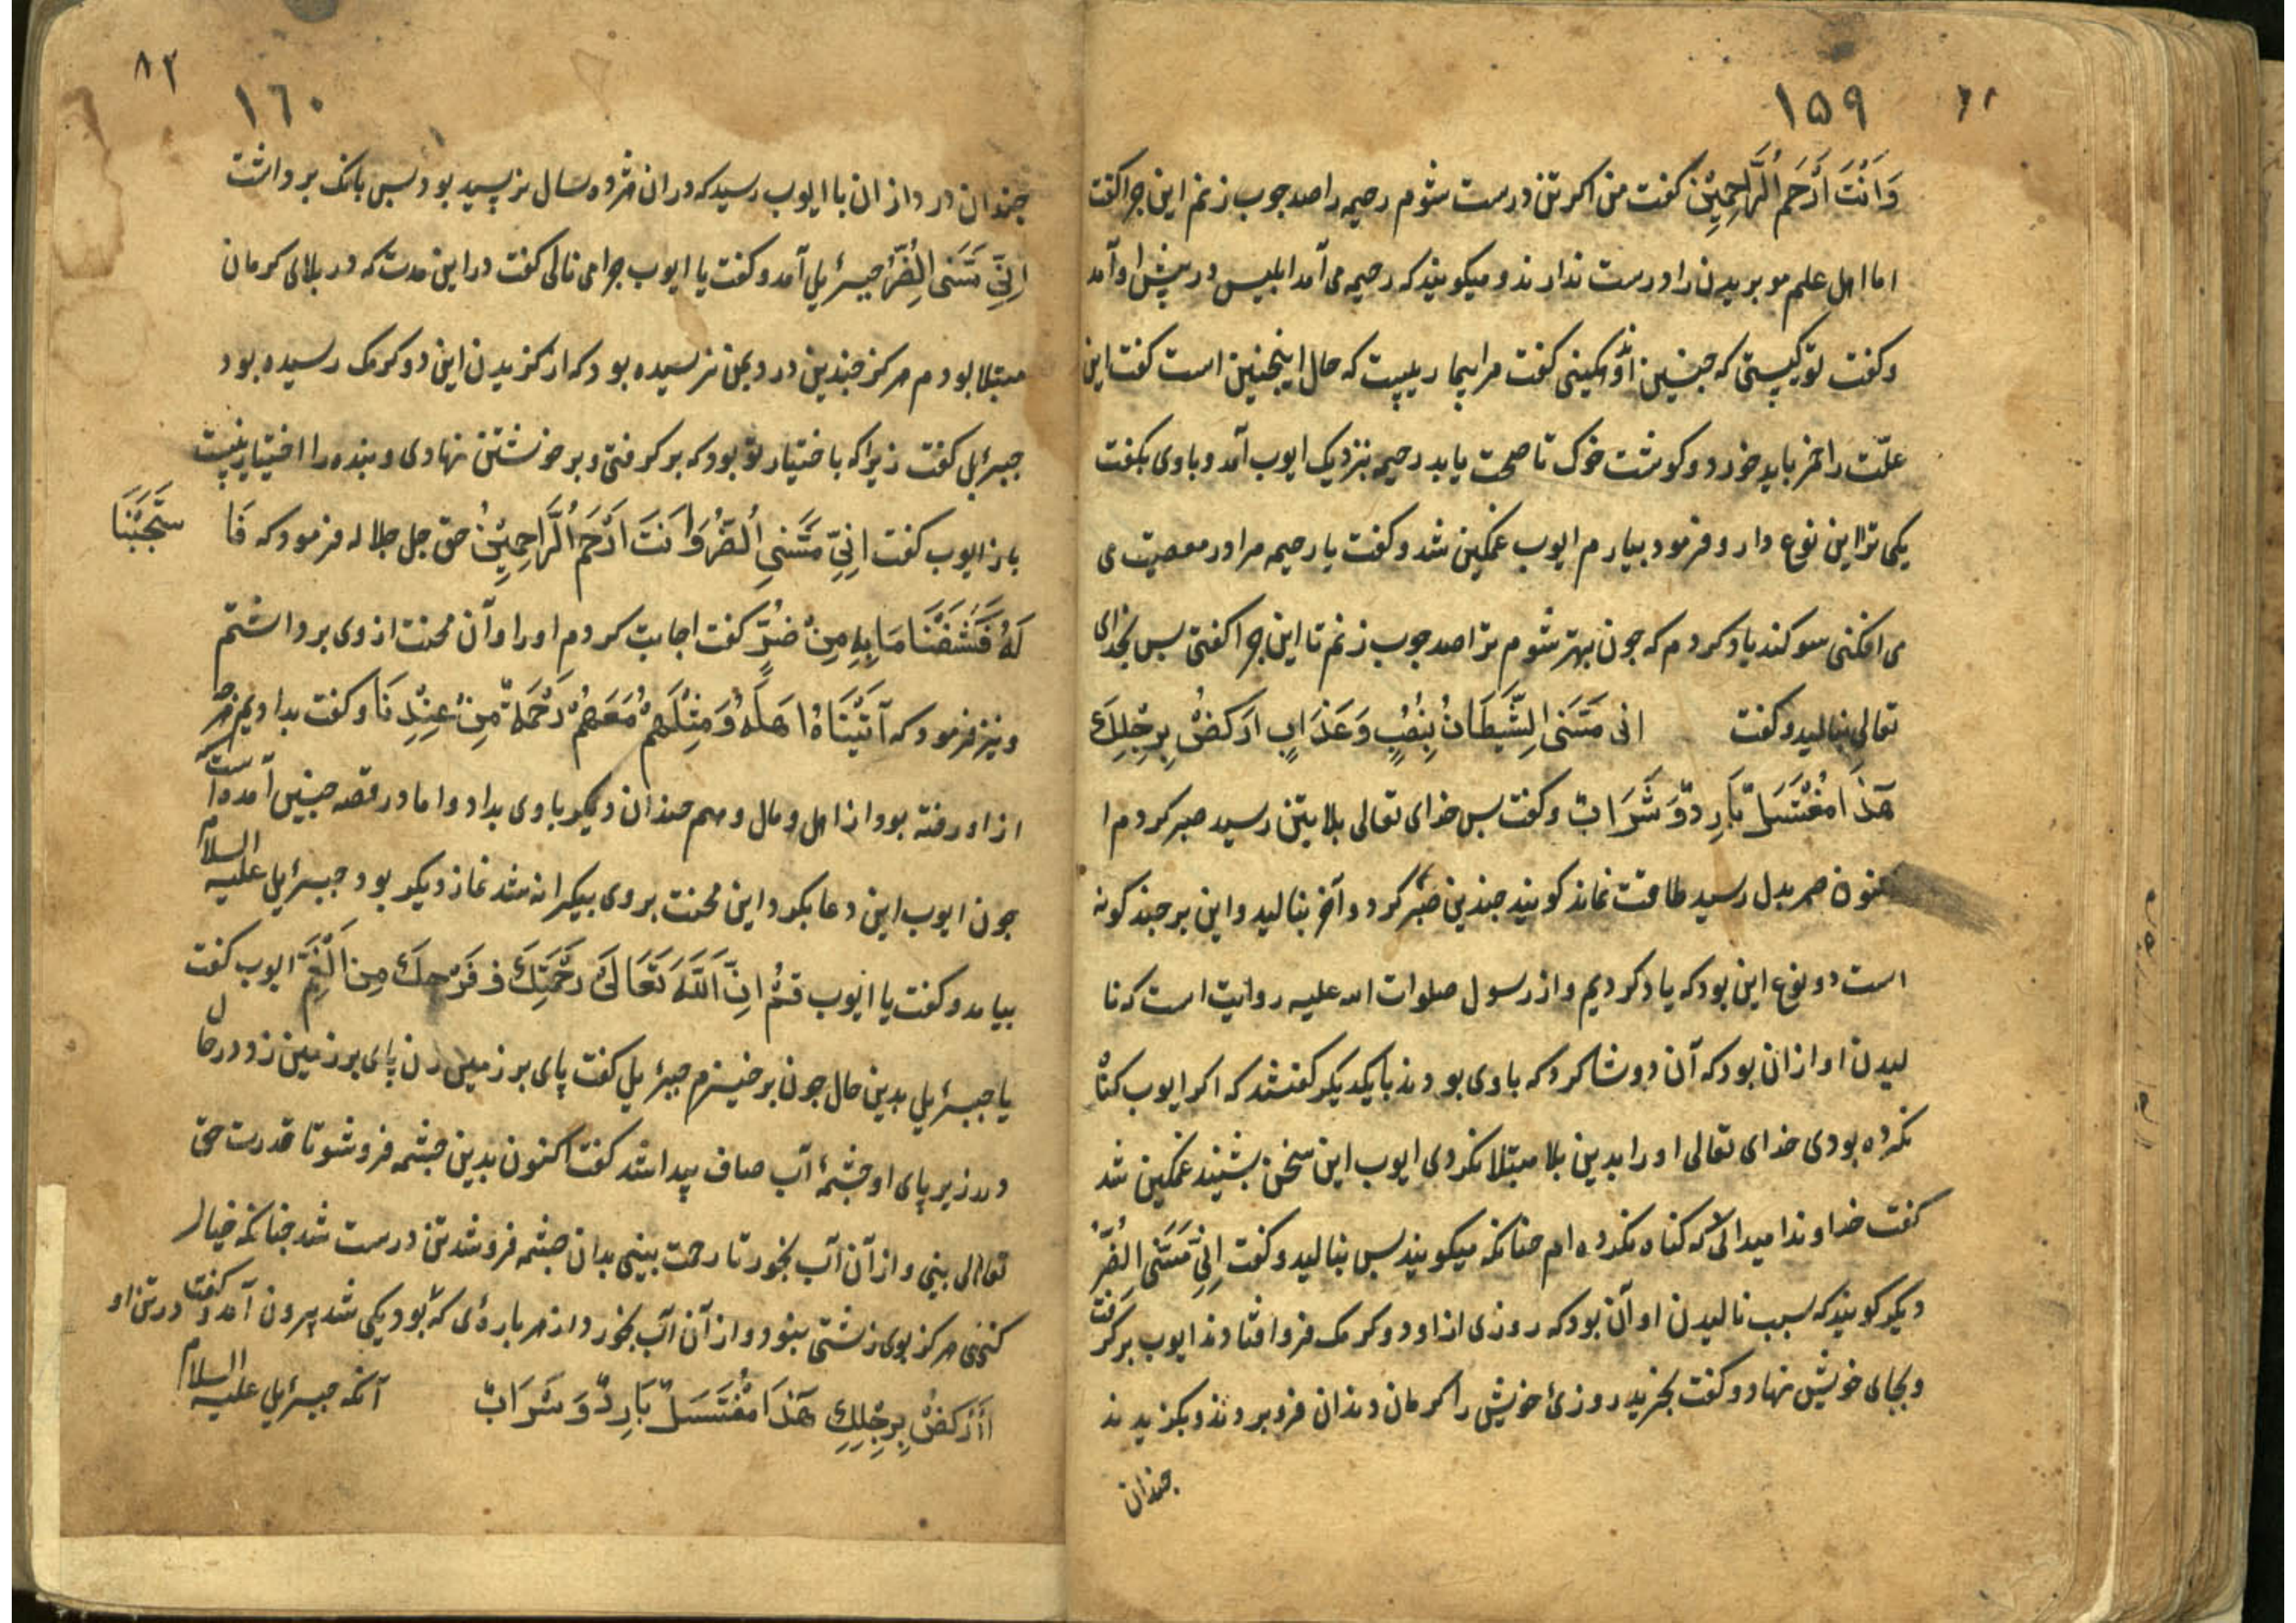 ١٥٩
وَاَنْتَ اَرْحَمُ الرَّاحِمِیْنَ کفت من اکر تن درست شوم رحیمه را صد جوب زنم این جرا کفت
اما اهل علم مو بریدن را درست ندارند و میکویند که رحیمه می آمد ابلیس در پیش او آمد
و کفت تو کیستی که جنین اندوهکینی کفت مرا بیماریست که حال اینجنین است کفت این
علّت را خمر باید خورد و کوشت خوک تا صحت یابد رحیمه بنزدیک ایوب آمد و باوی بکفت
یکی ترا این نوع دارو فرمود بیارم ایوب غمکین شد و کفت یا رحیمه مرا در معصیت می
می افکنی سوکند یاد کردم که جون بهتر شوم ترا صد جوب زنم تا این جرا کفتی بس بخدای
تعالی بنالید و کفت انی مَسَّنَی الشَّیطَانُ بِنُصْبٍ وَعَذَابٍ ارَکضْ بِرِجْلِكَ
هَذَا مُغْتَسَلٌ بَارِدٌ وَشَرَابٌ و کفت بس خدای تعالی بلا بتن رسید صبر کردم ا
کنون هم بدل رسید طاقت نماند کویند جندین صبر کرد و آخر بنالید و این بر جند کونه
است دو نوع این بود که یاد کردیم و از رسول صلوات الله علیه روایت است که نا
لیدن او از ان بود که آن دو شاکرد که باوی بودند با یکدیکر کفتند که اکر ایوب کناه
نکرده بودی خدای تعالی او را بدین بلا مبتلا نکردی ایوب این سخن بشنید غمکین شد
کفت خداوندا میدانی که کناه نکرده ام جنانکه میکویند بس بنالید و کفت اِنِّی مَسَّنَیَ الضُّرُّ
دیکر کویند که سبب نالیدن او آن بود که روزی از او دو کرمک فرو افتادند ایوب برکرفت
و بجای خویش نهاد و کفت بخرید روزئ خویش را کرمان دندان فرو بردند و بکزیدند
جندان
٨٢
١٦٠
جندان درد از ان با ایوب رسید که در ان هژده سال نرسید بود بس بانک برداشت
اِنِّی مَسَّنَی الضُّرُّ جبرئیل آمد و کفت یا ایوب جرا می نالی کفت در این مدت که در بلای کرمان
مبتلا بودم هرکز جندین درد بمن نرسیده بود که از کزیدن این دو کرمک رسیده بود
جبرئیل کفت زیرا که باختیار تو بود که برکرفتی و بر خویشتن نهادی و بنده را اختیار نیست
باز ایوب کفت اِنِّی مَسَّنِیَ الضُّرُّ وَاَنتَ اَرْحَمُ الرَّاحِمِیْنُ حق جل جلاله فرمود که فَا سْتَجَبْنَا
لَهُ فَكَشَفْنَا مَا بِهِ مِنْ ضُرٍّ کفت اجابت کردم او را و آن محنت از وی برداشتم
و نیز فرمود که آتَیْنَاهُ اهَلَهُ وَمِثْلَهُمْ مَعَهُمْ رَحْمَةً مِنْ عِنْدِنَا و کفت بدادیم هرجه
از او رفته بود از اهل و مال و هم جندان دیکر باوی بداد و اما در قصه جنین آمده است که
جون ایوب این دعا بکرد و این محنت بروی بیکرانه شد نماز دیکر بود جبرئیل علیه السلام
بیامد و کفت یا ایوب قُمْ اِنَّ اللّٰهَ تَعَالَى رَحْمَتِكَ فَرَحِكَ مِنَ الْغَمِّ ایوب کفت
یا جبرئیل بدین حال جون برخیزم جبرئیل کفت پای بر زمین زن پای بر زمین زد در حال
در زیر پای او جشمهٔ آب صاف پیدا شد کفت اکنون بدین جشمه فرو شو تا قدرت حق
تعالی بینی و از آن آب بخور تا رحمت بینی بدان جشمه فرو شد تن درست شد جنانکه خیال
کنی هرکز بوی زشتی نبود و از آن آب بخورد از هر پاره‌ی که بود یکی شد بیرون آمد و کفت در تن او
اَرْكُضْ بِرِجْلِكَ هَذَا مُغْتَسَلٌ بَارِدٌ وَشَرَابٌ آنکه جبرئیل علیه السلام